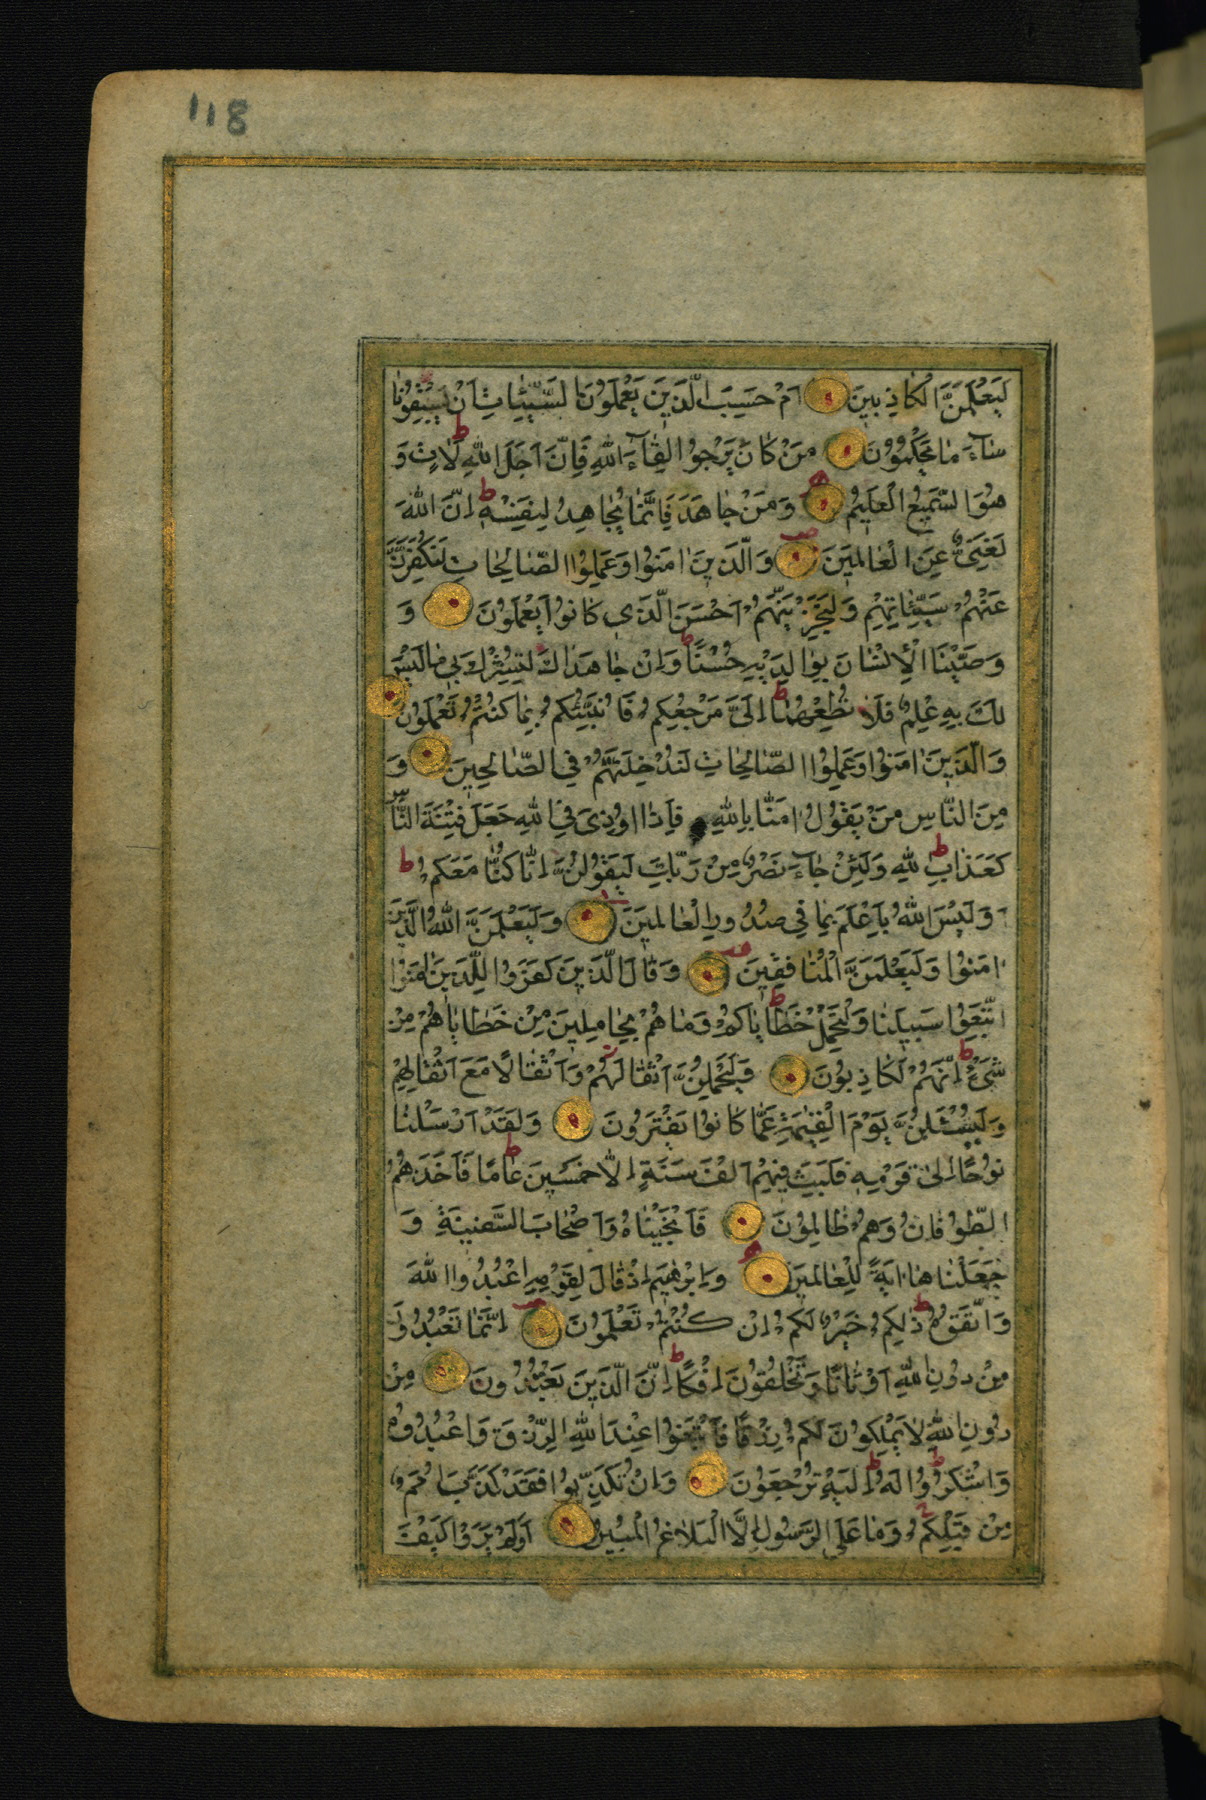 118
لَيَعْلَمَنَّ الْكَاذِبِينَ اَمْ حَسِبَ الَّذِينَ يَعْمَلُونَ السَّيِّئَاتِ اَنْ يَسْبِقُونَا
سَآءَ مَا يَحْكُمُونَ ط مَنْ كَانَ يَرْجُوا لِقَآءَ اللهِ فَاِنَّ اَجَلَ اللهِ لَاٰتٍ وَ
هُوَ السَّمِيعُ الْعَلِيمُ وَمَنْ جَاهَدَ فَاِنَّمَا يُجَاهِدُ لِنَفْسِهٖ ط اِنَّ اللهَ
لَغَنِىٌّ عَنِ الْعَالَمِينَ وَالَّذِينَ اٰمَنُوا وَعَمِلُوا الصَّالِحَاتِ لَنُكَفِّرَنَّ
عَنْهُمْ سَيِّئَاتِهِمْ وَلَنَجْزِيَنَّهُمْ اَحْسَنَ الَّذِى كَانُوا يَعْمَلُونَ وَ
وَصَّيْنَا الْاِنْسَانَ بِوَالِدَيْهِ حُسْنًا ط وَاِنْ جَاهَدَاكَ لِتُشْرِكَ بِى مَا لَيْسَ
لَكَ بِهٖ عِلْمٌ فَلَا تُطِعْهُمَا ط اِلَىَّ مَرْجِعُكُمْ فَاُنَبِّئُكُمْ بِمَا كُنْتُمْ تَعْمَلُونَ
وَالَّذِينَ اٰمَنُوا وَعَمِلُوا الصَّالِحَاتِ لَنُدْخِلَنَّهُمْ فِى الصَّالِحِينَ وَ
مِنَ النَّاسِ مَنْ يَقُولُ اٰمَنَّا بِاللهِ فَاِذَا اُوذِىَ فِى اللهِ جَعَلَ فِتْنَةَ النَّاسِ
كَعَذَابِ اللهِ ط وَلَئِنْ جَآءَ نَصْرٌ مِنْ رَبِّكَ لَيَقُولُنَّ اِنَّا كُنَّا مَعَكُمْ ط
وَلَيْسَ اللهُ بِاَعْلَمَ بِمَا فِى صُدُورِ الْعَالَمِينَ وَلَيَعْلَمَنَّ اللهُ الَّذِينَ
اٰمَنُوا وَلَيَعْلَمَنَّ الْمُنَافِقِينَ وَقَالَ الَّذِينَ كَفَرُوا لِلَّذِينَ اٰمَنُوا
اتَّبِعُوا سَبِيلَنَا وَلْنَحْمِلْ خَطَايَاكُمْ ط وَمَا هُمْ بِحَامِلِينَ مِنْ خَطَايَاهُمْ مِنْ
شَىْءٍ ط اِنَّهُمْ لَكَاذِبُونَ وَلَيَحْمِلُنَّ اَثْقَالَهُمْ وَاَثْقَالًا مَعَ اَثْقَالِهِمْ
وَلَيُسْئَلُنَّ يَوْمَ الْقِيٰمَةِ عَمَّا كَانُوا يَفْتَرُونَ وَلَقَدْ اَرْسَلْنَا
نُوحًا اِلٰى قَوْمِهٖ فَلَبِثَ فِيهِمْ اَلْفَ سَنَةٍ اِلَّا خَمْسِينَ عَامًا ط فَاَخَذَهُمُ
الطُّوفَانُ وَهُمْ ظَالِمُونَ فَاَنْجَيْنَاهُ وَاَصْحَابَ السَّفِينَةِ وَ
جَعَلْنَاهَا اٰيَةً لِلْعَالَمِينَ وَاِبْرٰهِيمَ اِذْ قَالَ لِقَوْمِهِ اعْبُدُوا اللهَ
وَاتَّقُوهُ ط ذٰلِكُمْ خَيْرٌ لَكُمْ اِنْ كُنْتُمْ تَعْلَمُونَ اِنَّمَا تَعْبُدُونَ
مِنْ دُونِ اللهِ اَوْثَانًا وَتَخْلُقُونَ اِفْكًا ط اِنَّ الَّذِينَ تَعْبُدُونَ مِنْ
دُونِ اللهِ لَا يَمْلِكُونَ لَكُمْ رِزْقًا فَابْتَغُوا عِنْدَ اللهِ الرِّزْقَ وَاعْبُدُوهُ
وَاشْكُرُوا لَهُ ط اِلَيْهِ تُرْجَعُونَ وَاِنْ تُكَذِّبُوا فَقَدْ كَذَّبَ اُمَمٌ
مِنْ قَبْلِكُمْ وَمَا عَلَى الرَّسُولِ اِلَّا الْبَلَاغُ الْمُبِينُ اَوَلَمْ يَرَوْا كَيْفَ